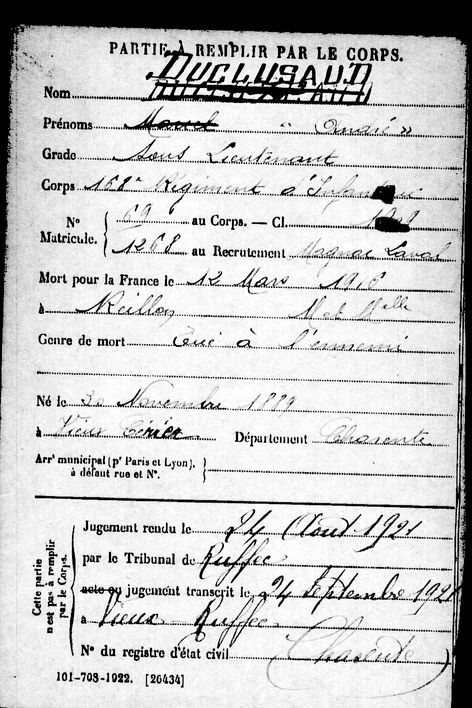 PARTIE À REMPLIR PAR LE CORPS.
DUCLUSAUD
Nom
Prénoms Marcel " André "
Grade Sous Lieutenant
Corps 168e Régiment d'Infanterie
N° Matricule. { 69 au Corps. — Cl.
1268 au Recrutement Magnac Laval
Mort pour la France le 12 Mars 1918
à Reillon M et Mlle
Genre de mort Tué à l'ennemi
Né le 30 Novembre 1889
à Vieux Département Charente
Arrt municipal (pr Paris et Lyon), à défaut rue et N°. }
Cette partie n'est pas à remplir par le Corps.
Jugement rendu le 24 Août 1921
par le Tribunal de Ruffec
acte ou jugement transcrit le 24 Septembre 1921
à Vieux Ruffec
N° du registre d'état civil Charente
101-708-1922. [26434]